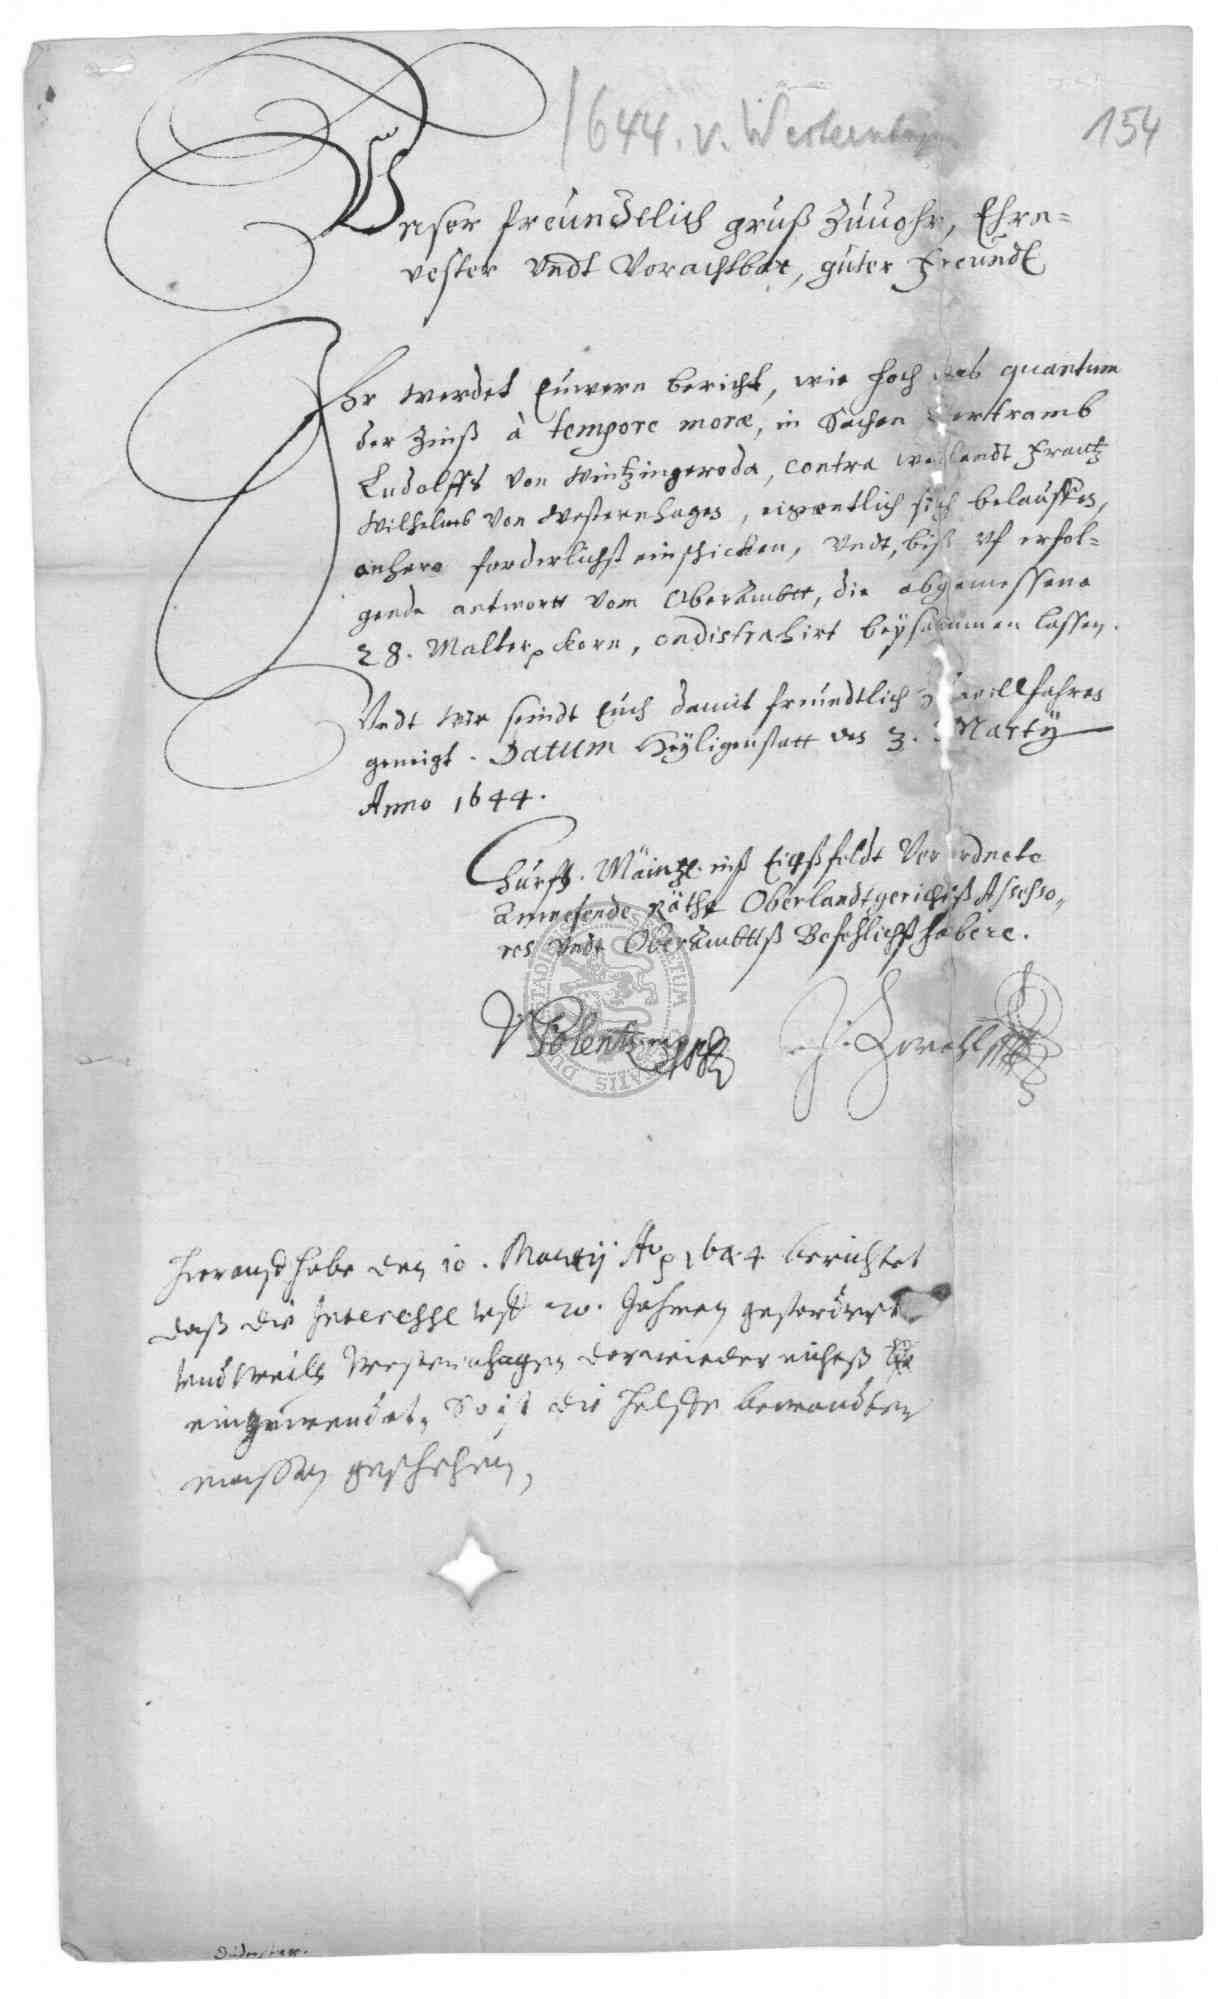 1644. v. Westernhagen
154
Unser freundtlich gruß zuuohr, Ehrn=
vester undt Vorachtbar, guter Freundt
Ihr werdet Euwern bericht, wie hoch das quantum
der Zinß à tempore moræ, in Sachen Bertramb
Ludolffs von Wintzingeroda, contra weilandt Frantz
Wilhelmb von Westernhagen, eigentlich sich belauffen,
anhero forderlichst einschicken, Undt, biß uf erfol=
gende antwortt vom Oberambtt, die abgemessene
28. Malter korn, ondistrahirt beysammen lassen.
Undt wir seindt Euch damit freundtlich zu willfahren
geneigt. Datum Heyligenstatt den 3. Martÿ
Anno 1644.
Churfl. Mäintzl. uffß Eichßfeldt Verordnete
Anwesende Räthe Oberlandtgerichtß Assesso„
res undt Oberambttß Befehlichßhabere.
Polentz mppr
Hierauff habe den 10. Martij Ao 1644 berichtet
daß die Interesse uff 20. Jahren gefordert
undt weill Westernhagen darwieder nichts
eingewendet, So ist die helffte bewandten
massen geschehen,
Duderstatt.